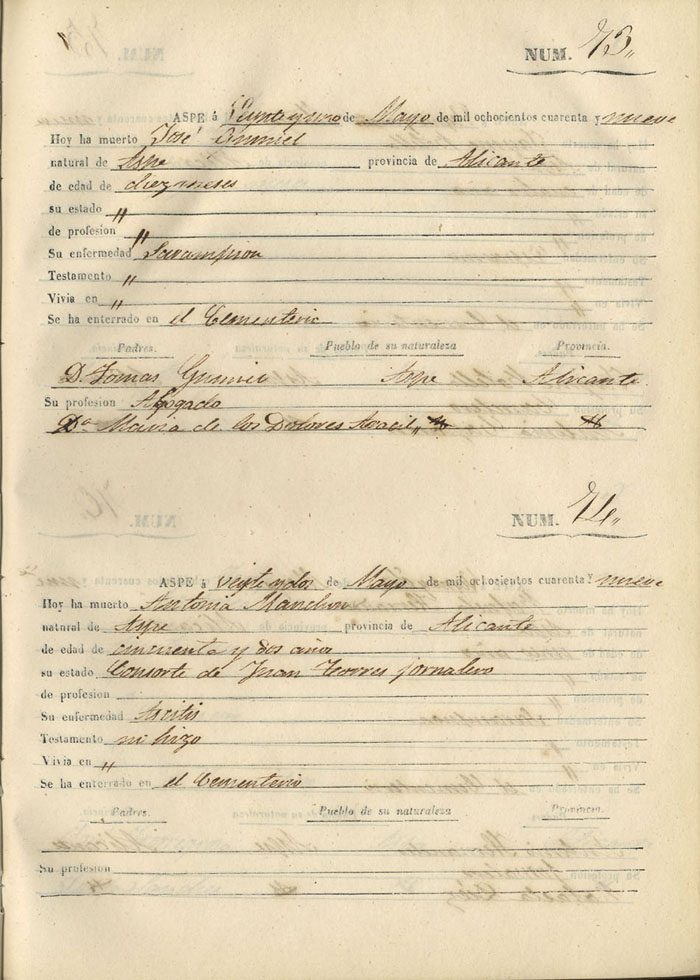 NUM. 73„
ASPE á Veinteyuno de Mayo de mil ochocientos cuarenta y nueve
Hoy ha muerto José
natural de Aspe provincia de Alicante
de edad de diez meses
su estado „
de profesion „
Su enfermedad Sarampion
Testamento „
Vivia en „
Se ha enterrado en el Cementerio
Padres. Pueblo de su naturaleza Provincia.
D. Tomas Aspe Alicante
Su profesion Abogado
Da Maria de los Dolores Aracil „ „
NUM. 74„
ASPE á veintidos de Mayo de mil ochocientos cuarenta y nueve
Hoy ha muerto Antonia Manchon
natural de Aspe provincia de Alicante
de edad de cincuenta y dos años
su estado Consorte de Juan Torres jornalero
de profesion
Su enfermedad
Testamento ni hizo
Vivia en „
Se ha enterrado en el Cementerio
Padres. Pueblo de su naturaleza Provincia.
Su profesion